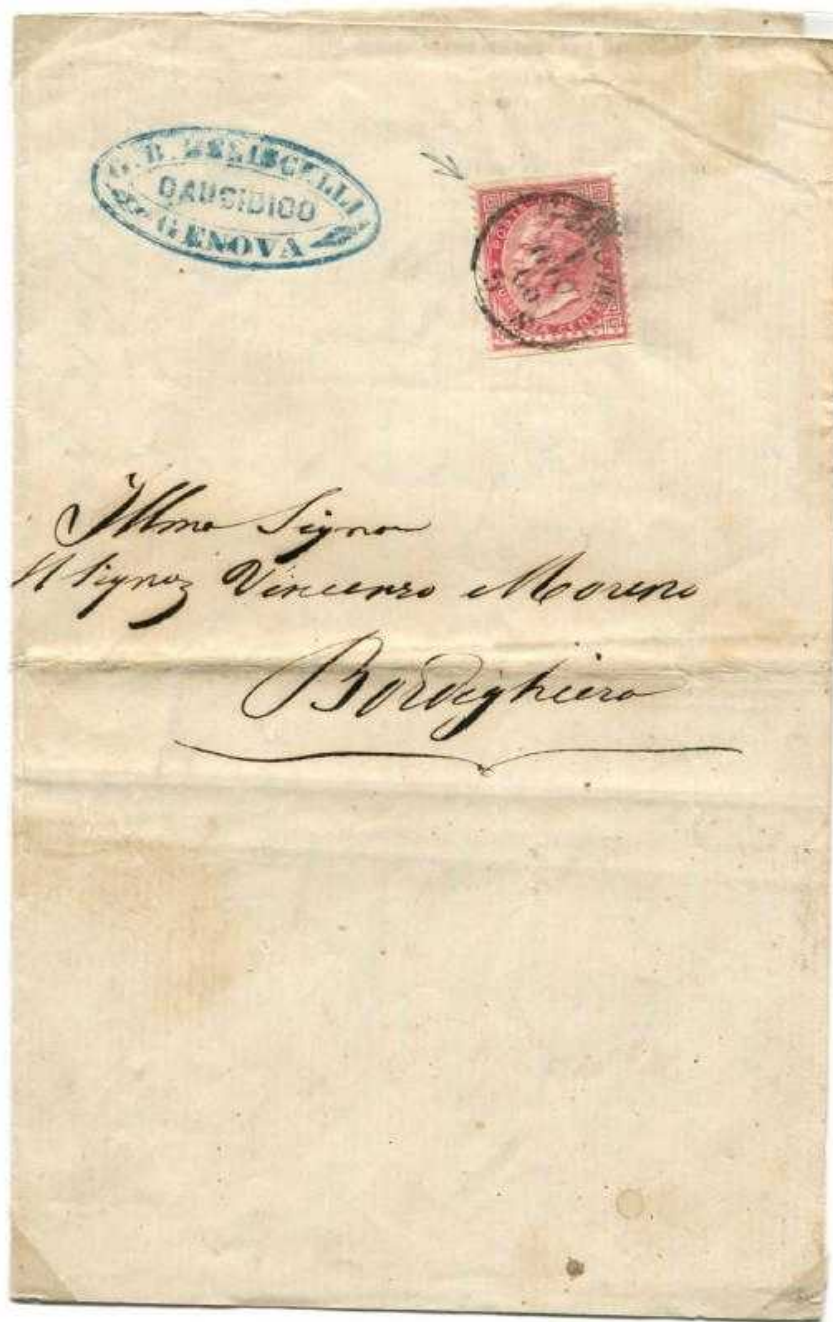 G. B. MENISCELLI
CAUSIDICO
GENOVA
Illmo Signor
Il Signor Vincenzo Moreno
Bordighiera